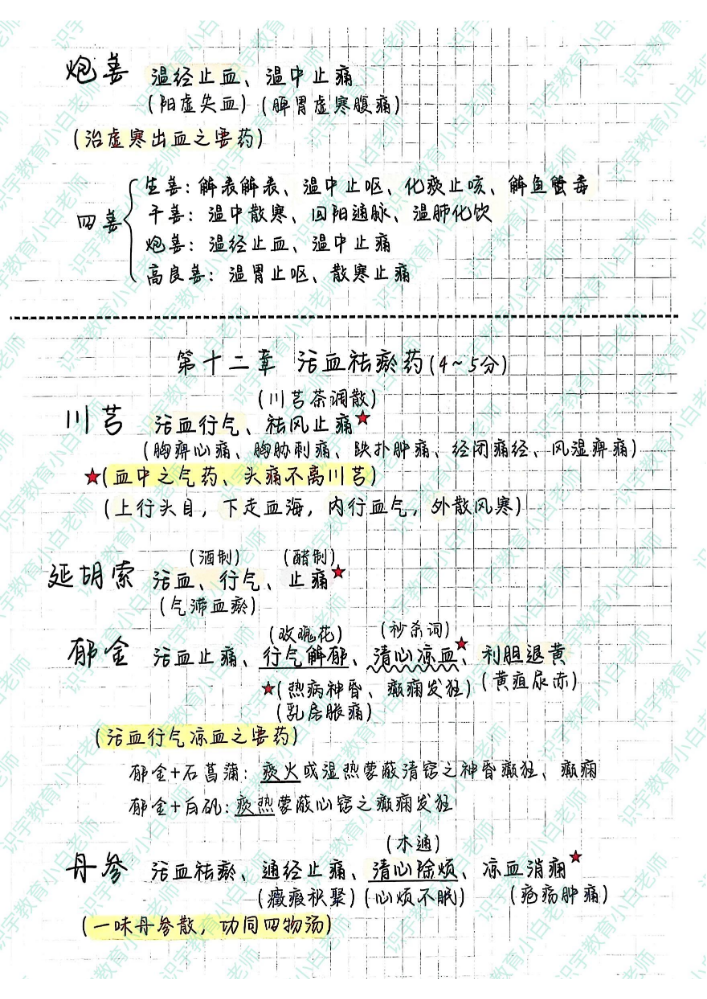 炮姜 温经止血、温中止痛
(阳虚失血)(脾胃虚寒腹痛)
(治虚寒出血之要药)
四姜
生姜:解表解表、温中止呕、化痰止咳、解鱼蟹毒
干姜:温中散寒、回阳通脉、温肺化饮
炮姜:温经止血、温中止痛
高良姜:温胃止呕、散寒止痛
第十二章 活血祛瘀药(4~5分)
(川芎茶调散)
川芎 活血行气、祛风止痛★
(胸痹心痛、胸胁刺痛、跌扑肿痛、经闭痛经、风湿痹痛)
★(血中之气药、头痛不离川芎)
(上行头目,下走血海,内行血气,外散风寒)
(酒制) (醋制)
延胡索 活血、行气、止痛★
(气滞血瘀)
(玫瑰花) (秒杀词)
郁金 活血止痛、行气解郁、清心凉血★、利胆退黄
★(热病神昏、癫痫发狂)(黄疸尿赤)
(乳房胀痛)
(活血行气凉血之要药)
郁金+石菖蒲:痰火或湿热蒙蔽清窍之神昏癫狂、癫痫
郁金+白矾:痰热蒙蔽心窍之癫痫发狂
(木通)
丹参 活血祛瘀、通经止痛、清心除烦、凉血消痈★
(癥瘕积聚)(心烦不眠) (疮疡肿痛)
(一味丹参散,功同四物汤)
识宇教育小白老师